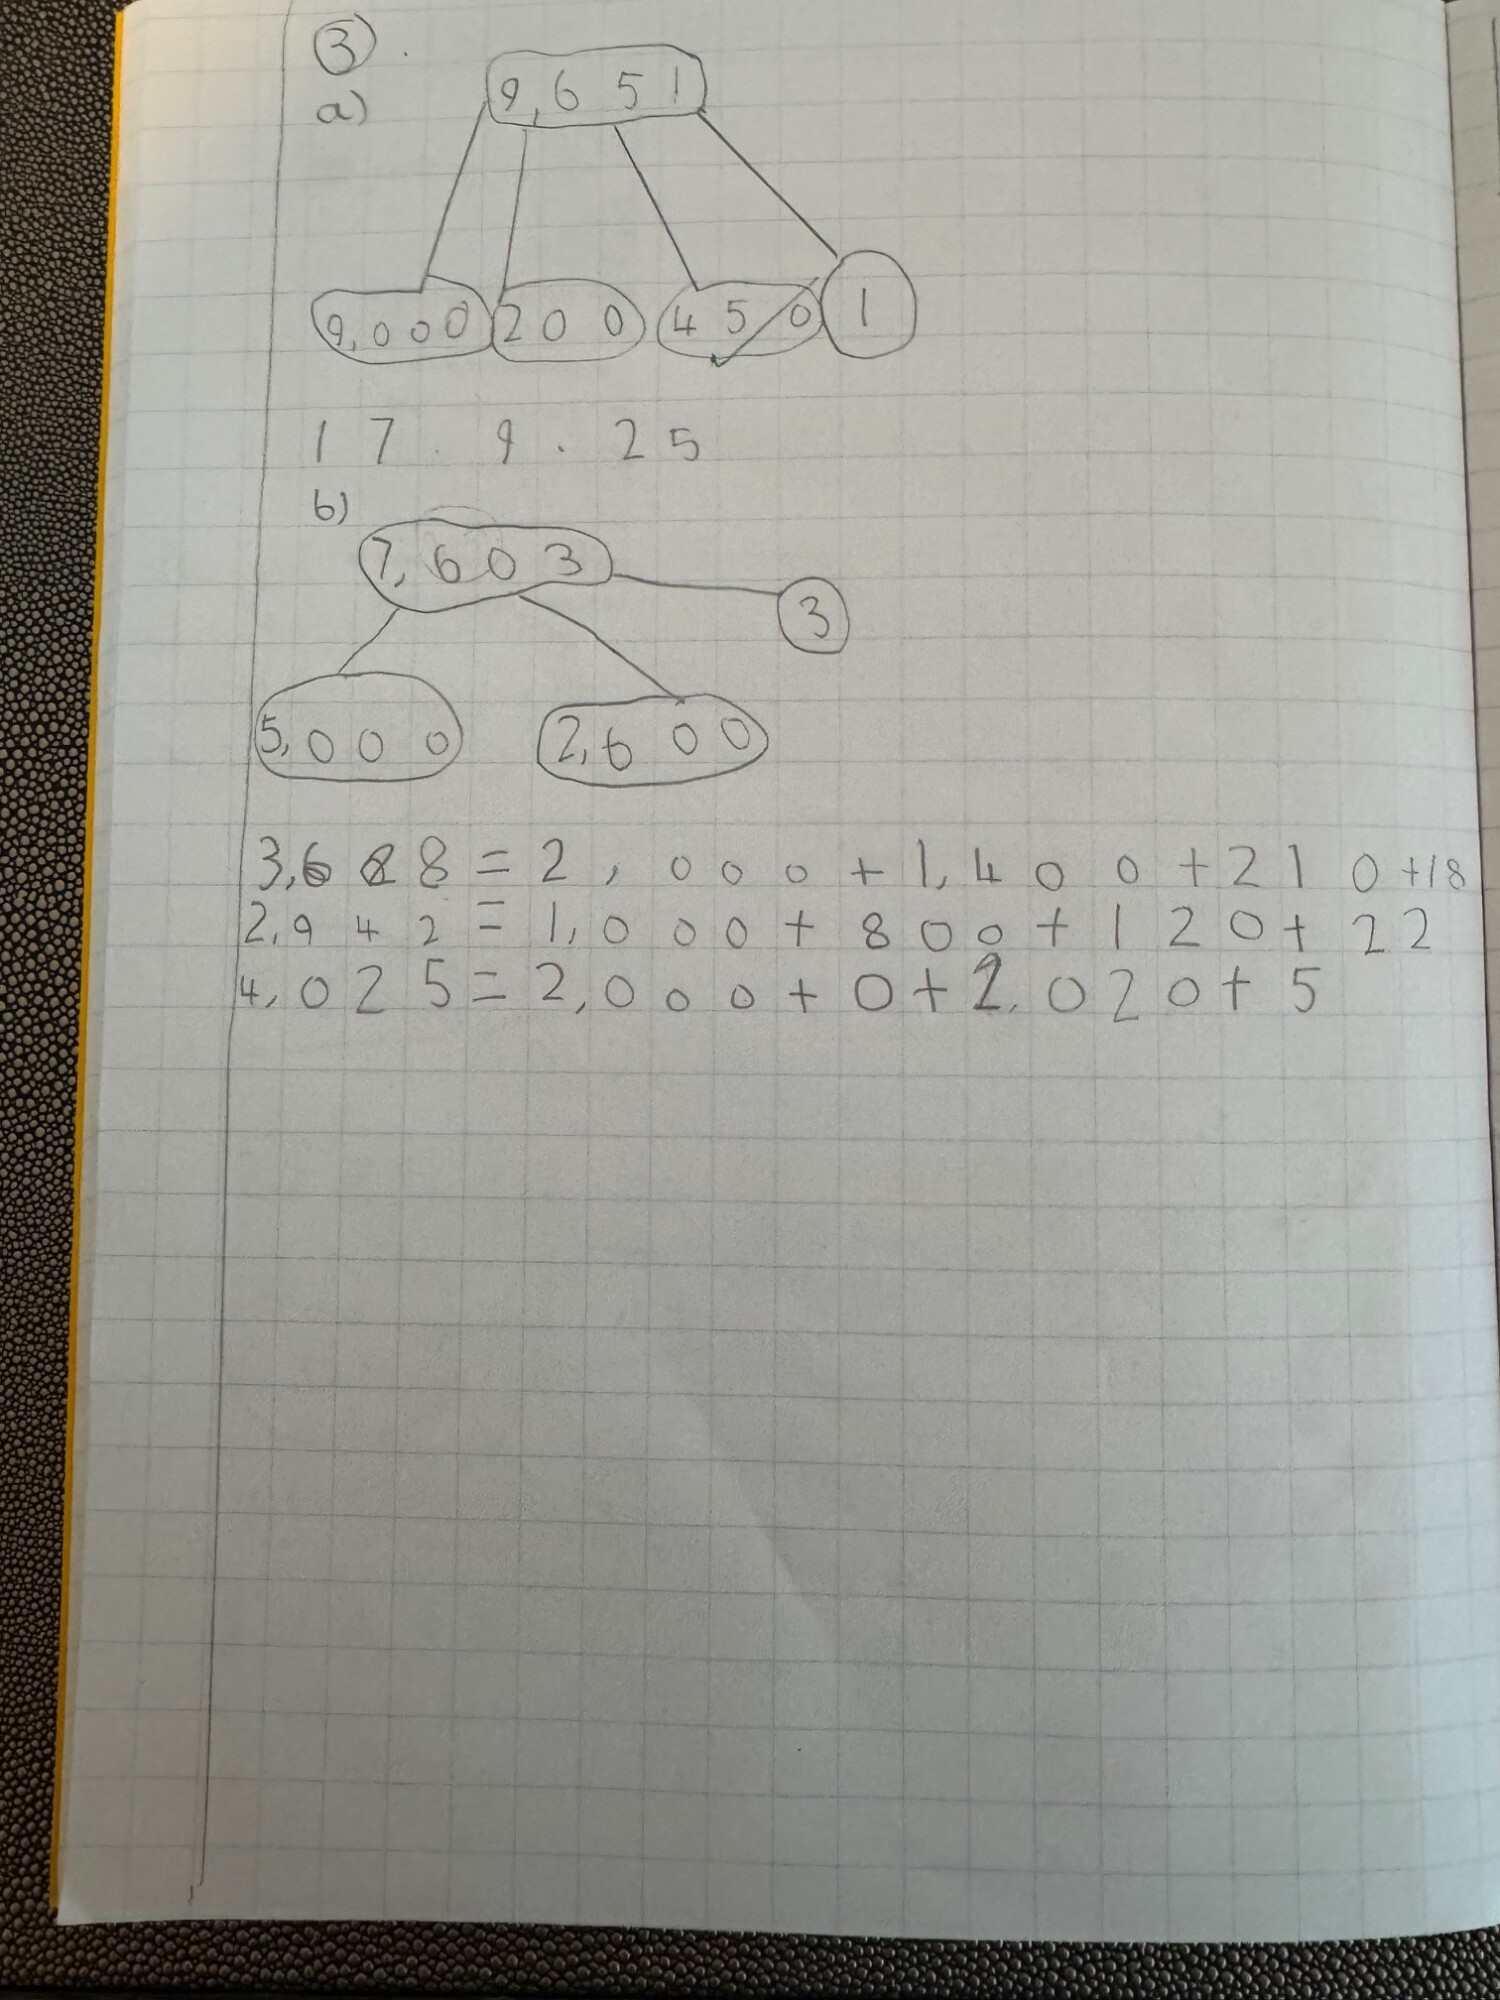 3.
a)
9,651
9,000 200 450 1
17.9.25
b)
7,603
3
5,000 2,600
3,628 = 2,000 + 1,400 + 210 + 18
2,942 = 1,000 + 800 + 120 + 22
4,025 = 2,000 + 0 + 2,020 + 5